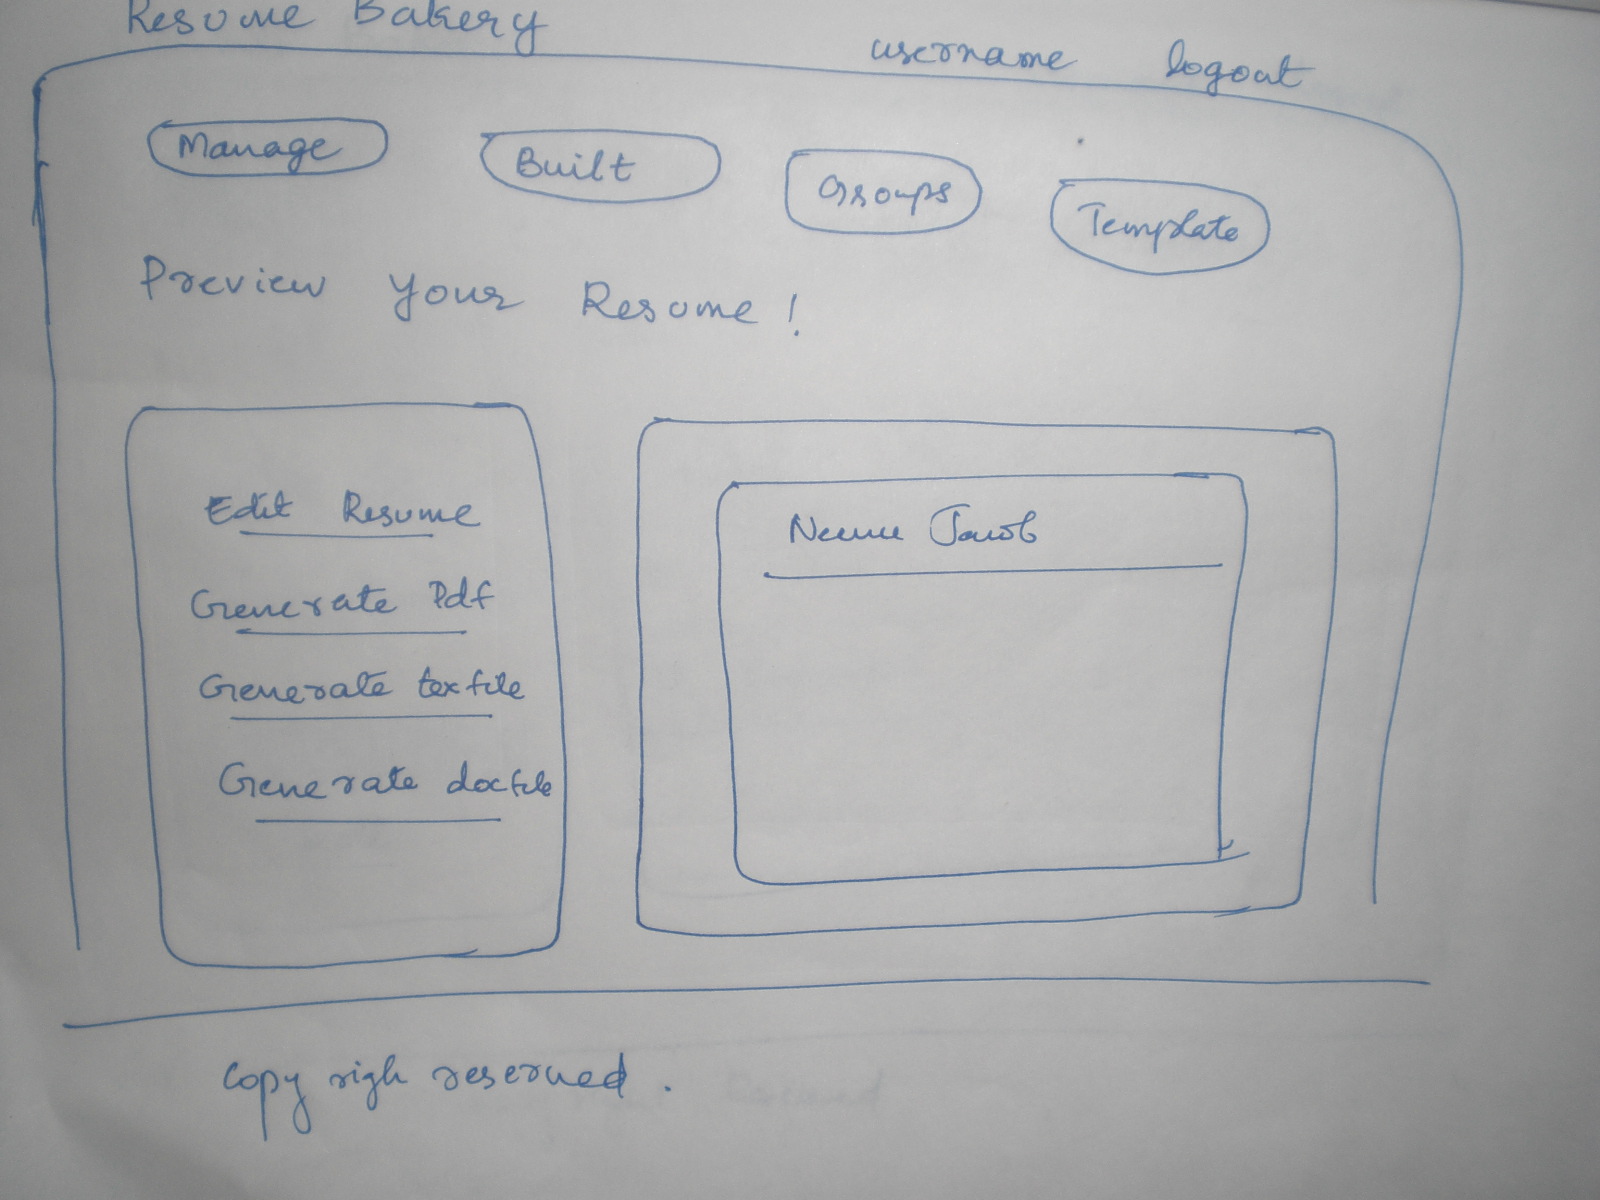 Resume Bakery
username logout
Manage Built Groups Template
Preview Your Resume!
Edit Resume
Generate Pdf
Generate texfile
Generate docfile
Copy righ reserved.